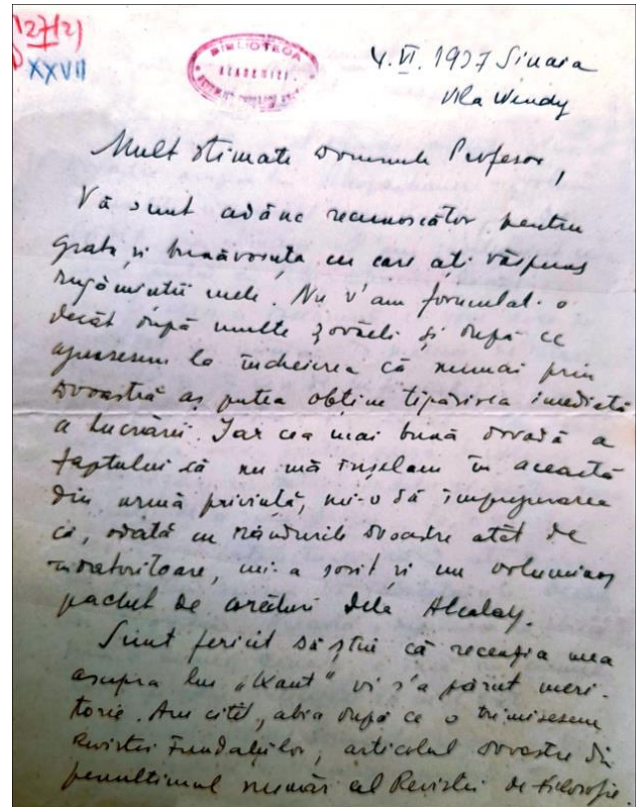 127(2)
XXVII
BIBLIOTECA
ACADEMIEI
4.VI.1937 Sinaia
Vila Wendy
Mult Stimate Domnule Profesor,
Vă sunt adânc recunoscător pentru
grația și bunăvoința cu care ați răspuns
rugăminții mele. Nu v'am formulat-o
decât după multe zovăeli și după ce
ajunsesem la încheierea că numai prin
Dvoastră aș putea obține tipărirea imediată
a lucrării. Iar cea mai bună dovadă a
faptului că nu mă înșelam în această
din urmă privință, mi-o dă împrejurarea
că, odată cu rândurile Dvoastre atât de
îndatoritoare, mi-a sosit și un voluminos
pachet de corecturi dela Alcalay.
Sunt fericit să știu că recenzia mea
asupra lui „Kant” vi s'a părut meri-
torie. Am citit, abia după ce o trimisesem
Revistei Fundațiilor, articolul Dvoastre din
penultimul număr al Revistei de Filosofie